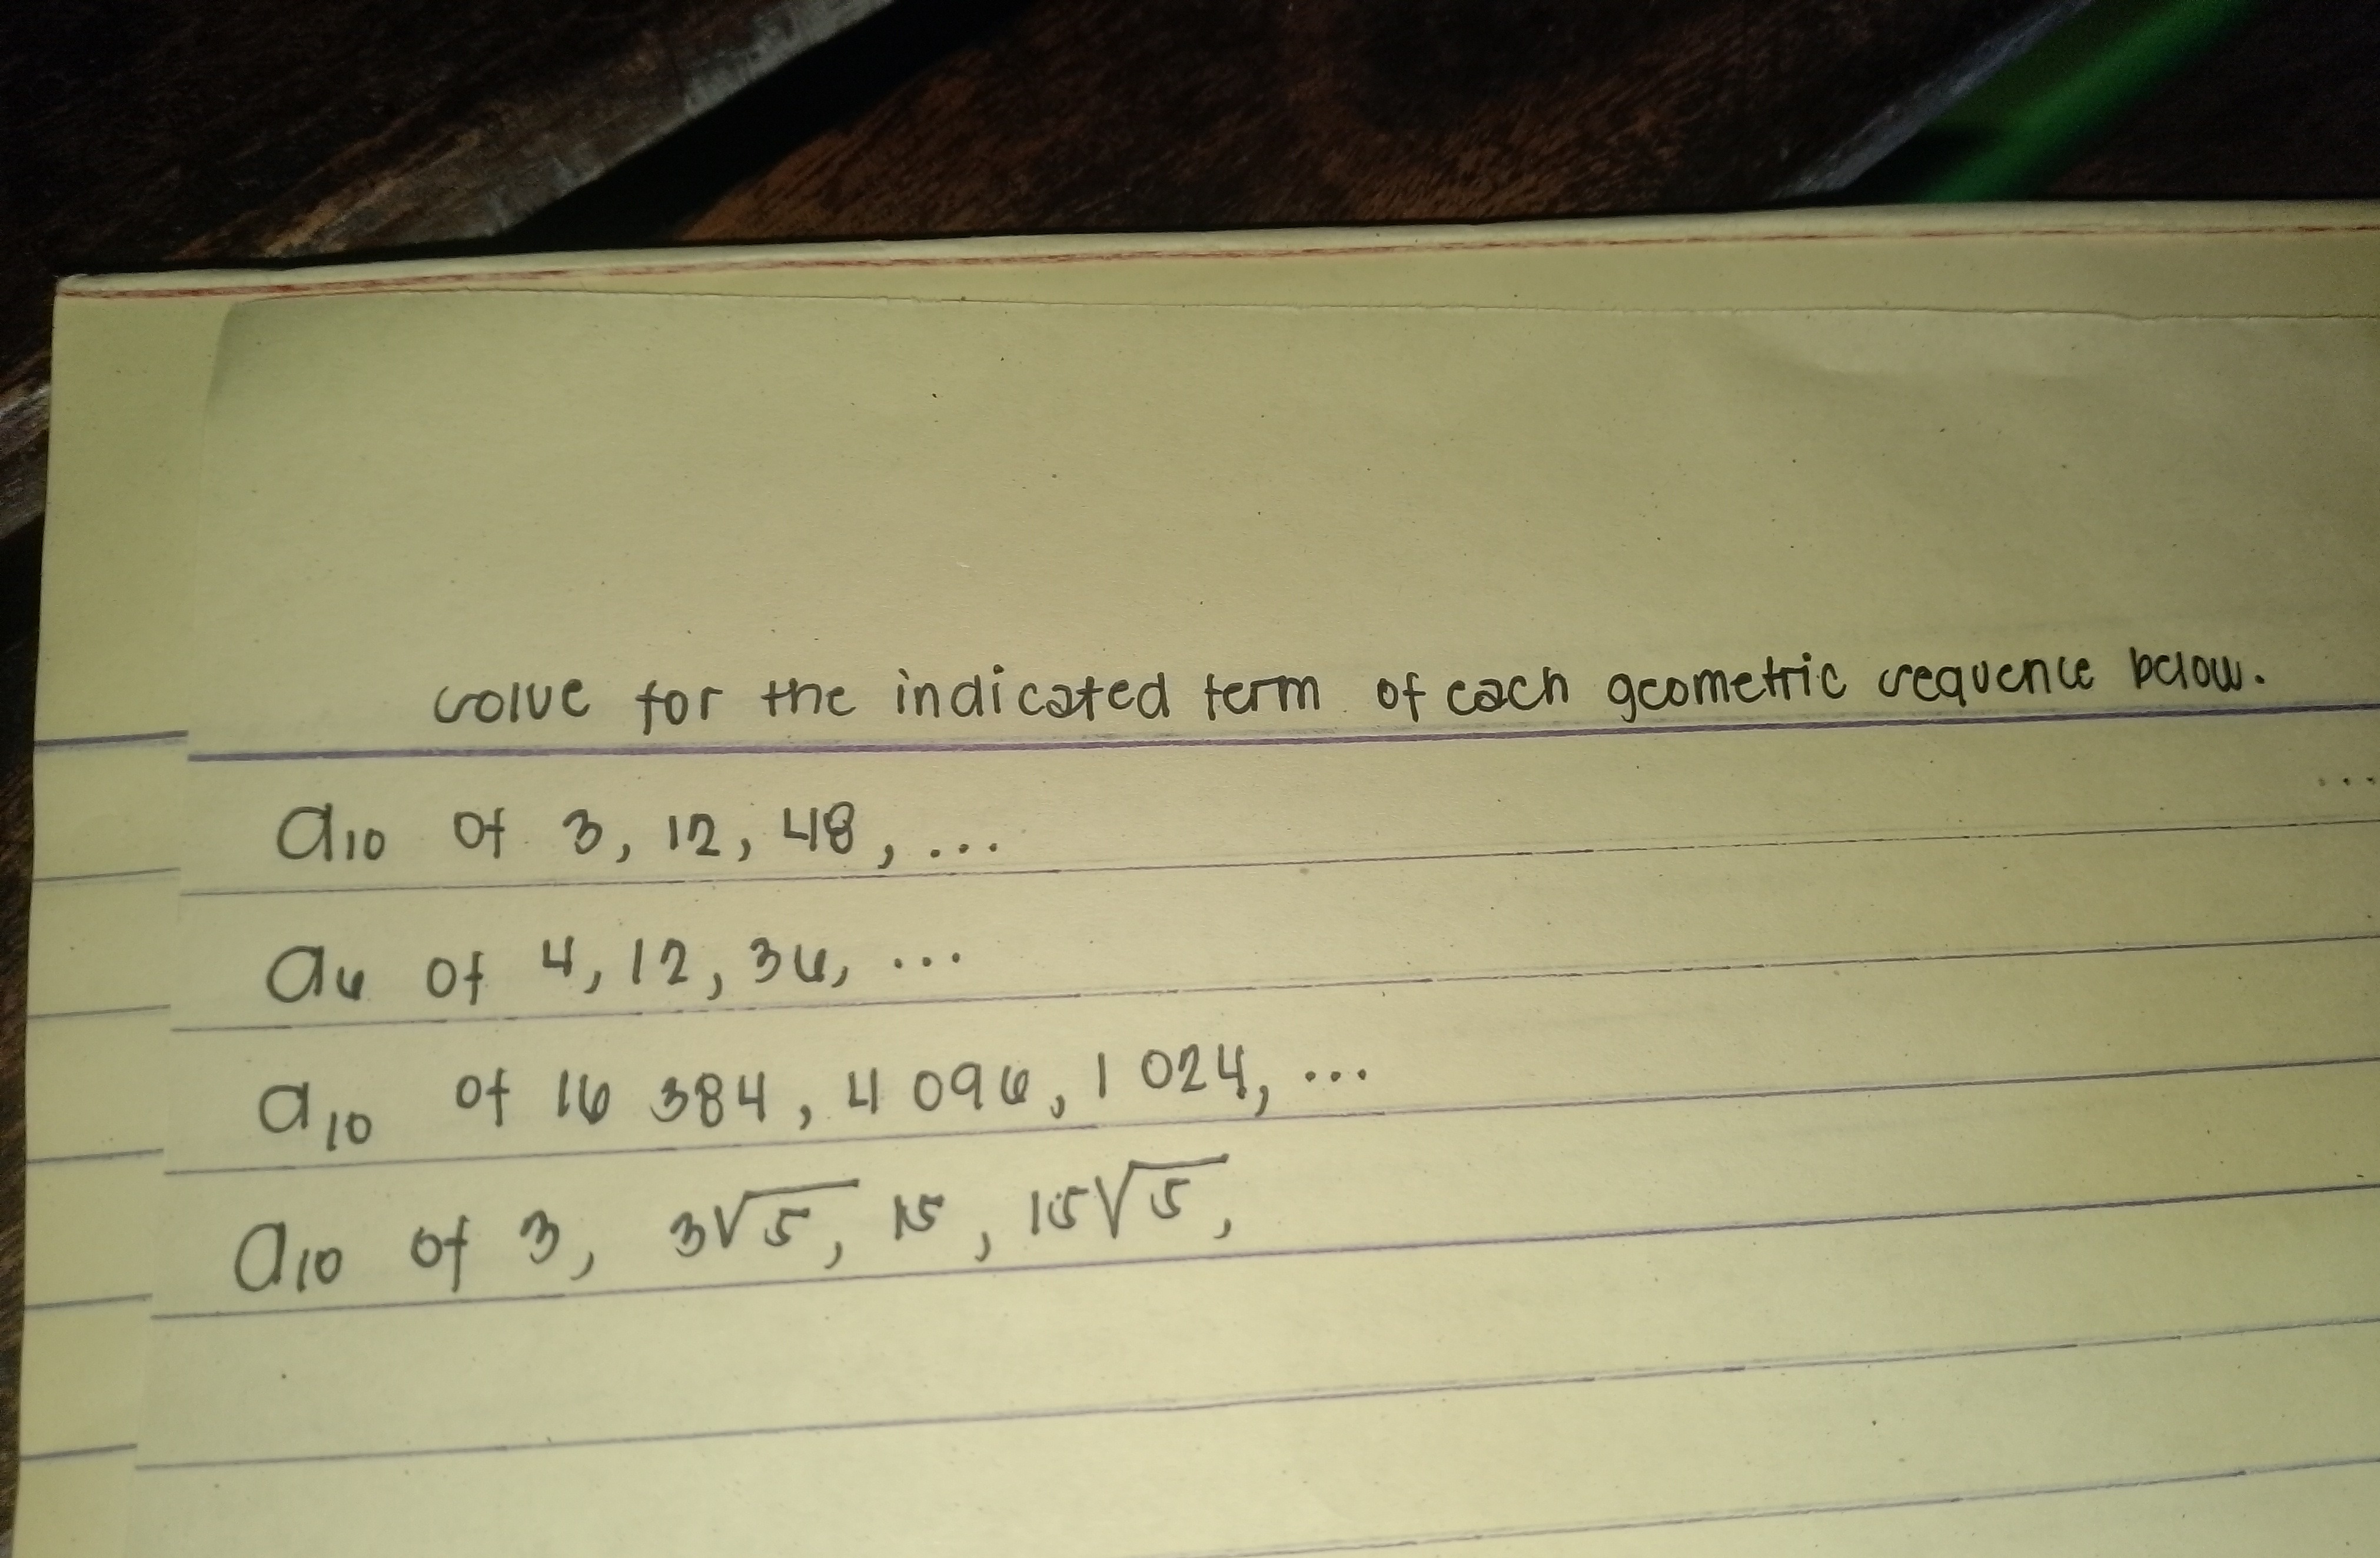 solve for the indicated term of each geometric sequence below.
...
a₁₀ of 3, 12, 48, ...
a₆ of 4, 12, 36, ...
a₁₀ of 16 384, 4 096, 1 024, ...
a₁₀ of 3, 3√5, 15, 15√5,